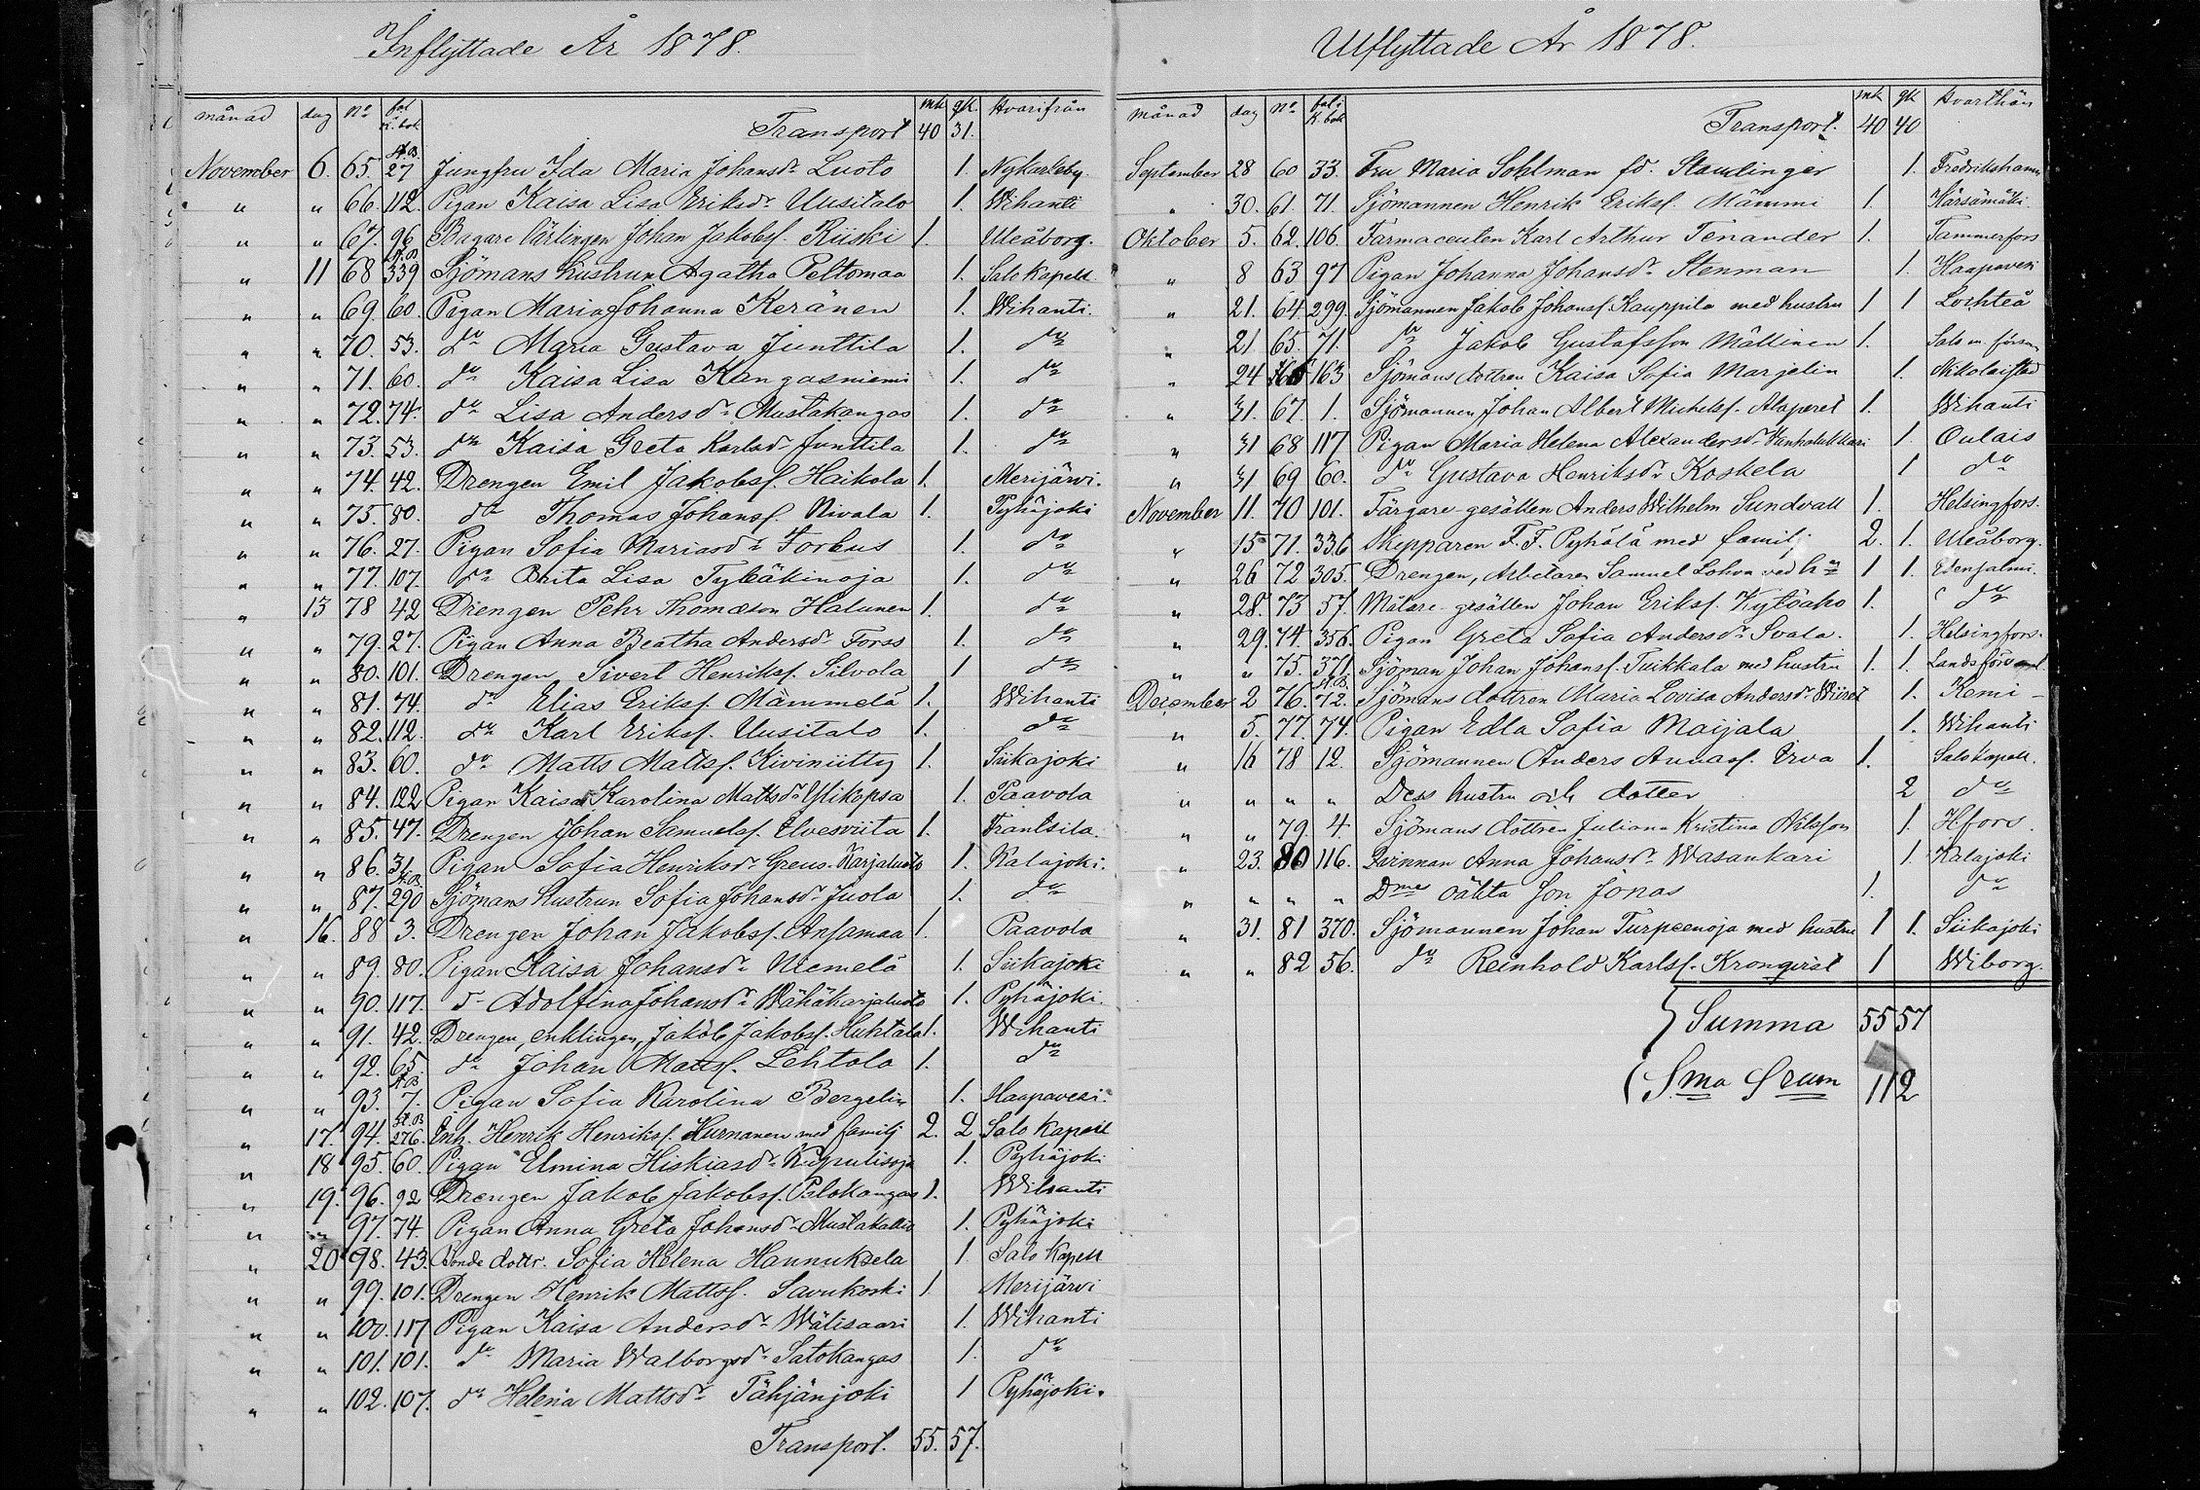 Inflyttade År 1878.
månad dag No fol. K. bok mk qk. Hvarifrån
Transport 40 31.
November 6. 65. A.B. 27 Jungfru Ida Maria Johansdr Luoto 1. Nykarleby
" " 66. 112. Pigan Kaisa Lisa Eriksdr Uusitalo 1. Wihanti
" " 67. 96 Bagare Lärlingen Johan Jakobsf. Riiski 1. Uleåborg.
" 11 68 A.B. 339 Sjömans hustrun Agatha Peltomaa 1. Salo kapell
" " 69. 60. Pigan Maria Johanna Keränen 1. Wihanti.
" " 70. 53. do Maria Gustava Junttila 1. do
" " 71. 60. do Kaisa Lisa Kangasniemi 1. do
" " 72. 74. do Lisa Andersdr Mustakangas 1. do
" " 73. 53. do Kaisa Greta Karlsdr Junttila 1. do
" " 74. 42. Drengen Emil Jakobsf. Haikola 1. Merijärvi.
" " 75. 80. do Thomas Johansf. Nivala 1. Pyhäjoki
" " 76. 27. Pigan Sofia Mariasdr Forbus 1. do
" " 77. 107. do Brita Lisa 1. do
" 13 78 42 Drengen Pehr Thomæson Halunen 1. do
" " 79. 27. Pigan Anna Beatha Andersdr Forss 1. do
" " 80. 101. Drengen Sivert Henriksf. Silvola 1 do
" " 81. 74. do Elias Eriksf. Mämmelä 1. Wihanti
" " 82. 112. do Karl Eriksf. Uusitalo 1. do
" " 83. 60. do Matts Mattsf. Kiviniitty 1. Siikajoki
" " 84. 122 Pigan Kaisa Karolina Mattsdr Ylikopsa 1. Paavola
" " 85. 47. Drengen Johan Samuelsf. Ilvesviita 1. Frantsila.
" " 86. 31. Pigan Sofia Henriksdr Greus-Karjaluoto 1. Kalajoki.
" " 87. A.B. 290 Sjömans hustrun Sofia Johansdr Juola 1. do
" 16. 88 3. Drengen Johan Jakobsf. Ansamaa 1. Paavola
" " 89. 80. Pigan Kaisa Johansdr Niemelä 1. Siikajoki
" " 90. 117. do Adolfina Johansdr Wähäkarjaluoto 1. Pyhäjoki.
" " 91. 42. Drengen, enklingen, Jakob Jakobsf. Huhtala 1. Wihanti
" " 92. 65. do Johan Mattsf. Lehtola 1. do
" " 93. A.B. 7. Pigan Sofia Karolina Bergelin 1. Haapavesi.
" 17. 94. A.B. 276. Henrik Henriksf. Kurnanen med familj 2. 2 Salo kapell
" 18 95. 60. Pigan Elmina Hiskiasdr 1. Pyhäjoki
" 19. 96. 92 Drengen Jakob Jakobsf. Palokangas 1. Wihanti
" " 97. 74. Pigan Anna Greta Johansdr Mustakallio 1. Pyhäjoki
" 20 98. 43. Bonde dottr. Sofia Helena Hannuksela 1 Salo Kapell
" " 99. 101. Drengen Henrik Mattsf. Savukoski 1 Merijärvi
" " 100. 117 Pigan Kaisa Andersdr Wälisaari 1. Wihanti
" " 101. 101. do Maria Walborgsdr Satokangas 1. do
" " 102. 107. do Helena Mattsdr Tähjänjoki 1 Pyhäjoki.
Transport. 55. 57.
Utflyttade År 1878.
månad dag No fol. i K. bok mk qk Hvarthän
Transport. 40 40
September 28 60 33. Fru Maria Sohlman fd. Staudinger 1. Fredrikshamn
" 30. 61. 71. Sjömannen Henrik Eriksf. Mämmi 1. Kärsämäki.
Oktober 5. 62. 106. Farmaceuten Karl Arthur Tenander 1. Tammerfors
" 8 63 97 Pigan Johanna Johansdr Stenman 1. Haapavesi
" 21. 64. 299. Sjömannen Jakob Johansf. Kauppila med hustru 1 1 Lochteå
" 21 65. 71. do Jakob Gustafsson Mällinen 1. Salo m. förs.
" 24 66 163 Sjömans dottren Kaisa Sofia Marjelin 1. Nikolaistad
" 31. 67. 1. Sjömannen Johan Albert Michelsf. Alaperet 1. Wihanti
" 31 68 117 Pigan Maria Helena Alexandersdr 1. Oulais
" 31 69 60. do Gustava Henriksdr Koskela 1 do
November 11. 70 101. Färgare-gesällen Anders Wilhelm Sundvall 1. Helsingfors.
" 15 71. 336 Skepparen F. F. Pyhälä med familj 2. 1. Uleåborg.
" 26 72 305. Drengen, Arbetaren Samuel Lohva med hu 1 1. Idensalmi.
" 28. 73 57. Målare gesällen Johan Eriksf. Kytöaho 1. do
" 29. 74. 356. Pigan Greta Sofia Andersdr Svala. 1. Helsingfors.
" " 75. 371 Sjöman Johan Johansf. Tuikkala med hustru 1. 1. Landsförsaml.
December 2 76. A.B. 72. Sjömans dottren Maria Lovisa Andersdr Wiiret 1. Kemi -
" 5. 77. 74. Pigan Edla Sofia Maijala 1. Wihanti
" 16 78 12. Sjömannen Anders Annasf. Erva 1. Salo kapell.
" " " " Dess hustru och dotter 2 do
" " 79. 4. Sjömans dottren Juliana Kristina Nilsson 1. H:fors.
" 23. 80 116. Qvinnan Anna Johansdr Wasankari 1. Kalajoki
" " " " Dme oäkta son Jonas 1. do
" 31. 81 370. Sjömannen Johan Turpeenoja med hustru 1 1. Siikajoki
" " 82 56. do Reinhold Karlsf. Kronqvist 1 Wiborg.
Summa 55 57
S:ma S:rum 112